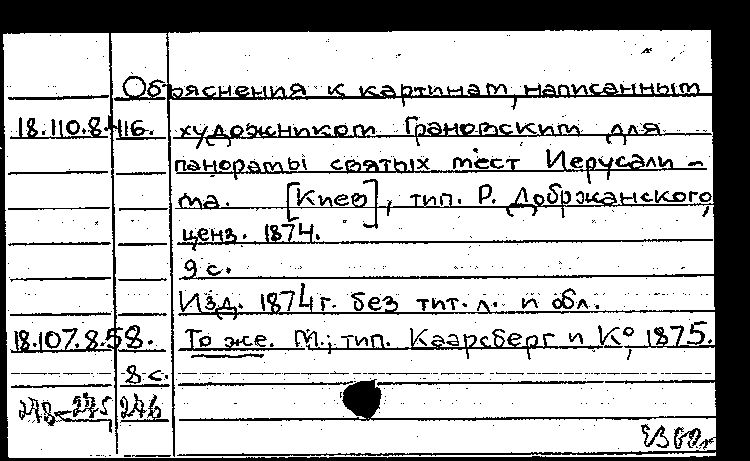 Объяснения к картинам, написанным
18.110.8.116. художником Грановским для
панорамы святых мест Иерусали-
ма. [Киев], тип. Р. Добржанского,
ценз. 1874.
9 с.
Изд. 1874 г. без тит. л. и обл.
18.107.8.58. То же. М.; тип. Каарсберг и К°, 1875.
8 с.
246